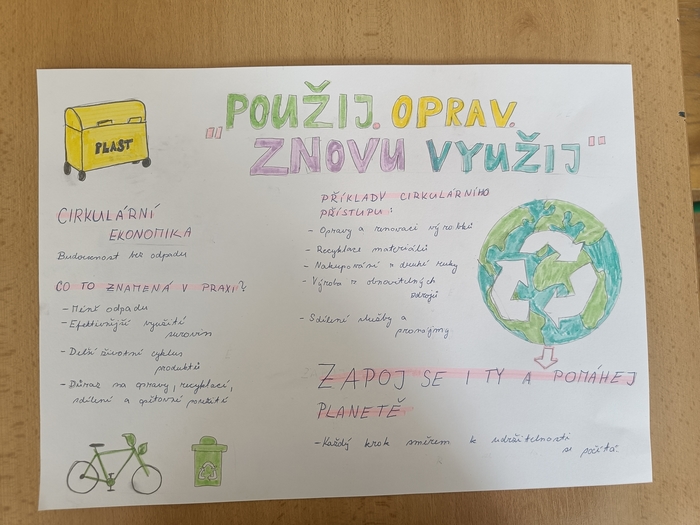 PLAST
"POUŽIJ. OPRAV.
ZNOVU VYUŽIJ"
CIRKULÁRNÍ
EKONOMIKA
Budoucnost bez odpadu
CO TO ZNAMENÁ V PRAXI?
- Méně odpadu
- Efektivnější využití
surovin
- Delší životní cyklus
produktů
- Důraz na opravy, recyklaci,
sdílení a opětovné použití
PŘÍKLADY CIRKULÁRNÍHO
PŘÍSTUPU:
- Opravy a renovaci výrobků
- Recyklace materiálů
- Nakupování z druhé ruky
- Výroba z obnovitelných
zdrojů
- Sdílené služby a
pronájmy
ZAPOJ SE I TY A POMÁHEJ
PLANETĚ
- Každý krok směrem k udržitelnosti
se počítá.